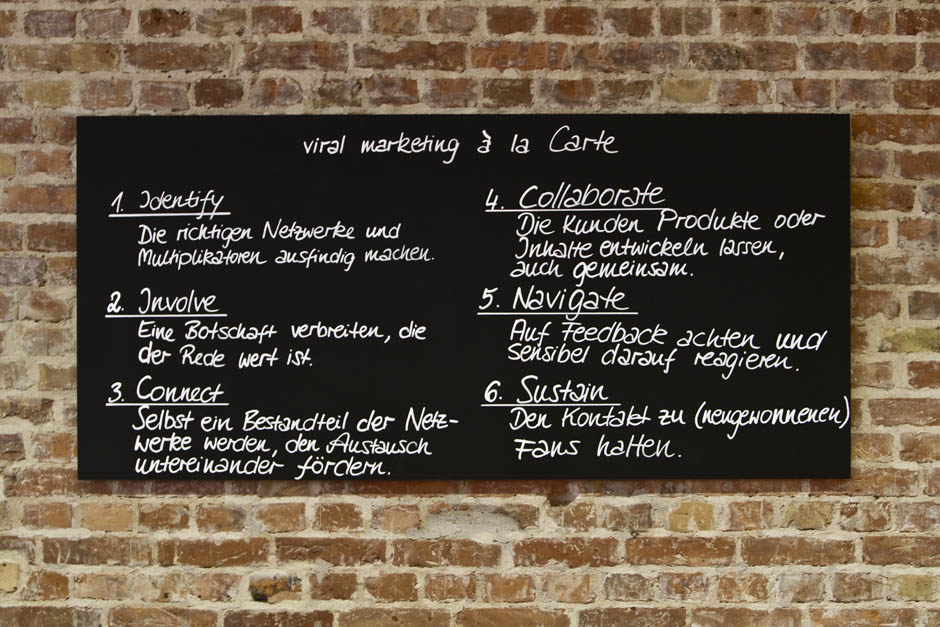 viral marketing à la Carte
1. Identify
Die richtigen Netzwerke und
Multiplikatoren ausfindig machen.
2. Involve
Eine Botschaft verbreiten, die
der Rede wert ist.
3. Connect
Selbst ein Bestandteil der Netz-
werke werden, den Austausch
untereinander fördern.
4. Collaborate
Die Kunden Produkte oder
Inhalte entwickeln lassen,
auch gemeinsam.
5. Navigate
Auf Feedback achten und
sensibel darauf reagieren.
6. Sustain
Den Kontakt zu (neugewonnenen)
Fans halten.